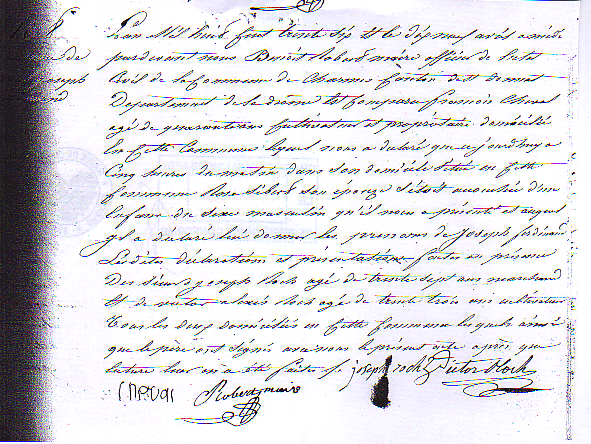 L'an Mil huit Cent trente six Et le dix neuf avril a midi
pardevant nous Benoit Robert maire officier de l'etat
Civil de la Commune de Charmes Canton de St Donnat
Departement de la drôme Est Comparu francois Cheval
agé de quarante ans Cultivateur et propriétaire domicilié
En Cette Commune lequel nous a déclaré que ce jourd'huy a
Cinq heures du matin dans son domicile situé en Cette
Commune Rose Sibert son épouze s'étoit accouchée d'un
Enfant du Sexe masculin qu'il nous a présenté et auquel
il a déclaré lui donner les prenoms de Joseph ferdinand
Les dites declarations et présentations faites en présence
Des sieurs joseph Roch agé de trente sept ans marchand
Et de victor alexis Roch agé de trente trois ans cultivateur
Tous les deux domiciliés en Cette Commune lesquels ainsi
que le père ont signés avec nous le présent acte après que
lecture leur en a été faite
joseph roch Victor Roch
Cheval Robert maire